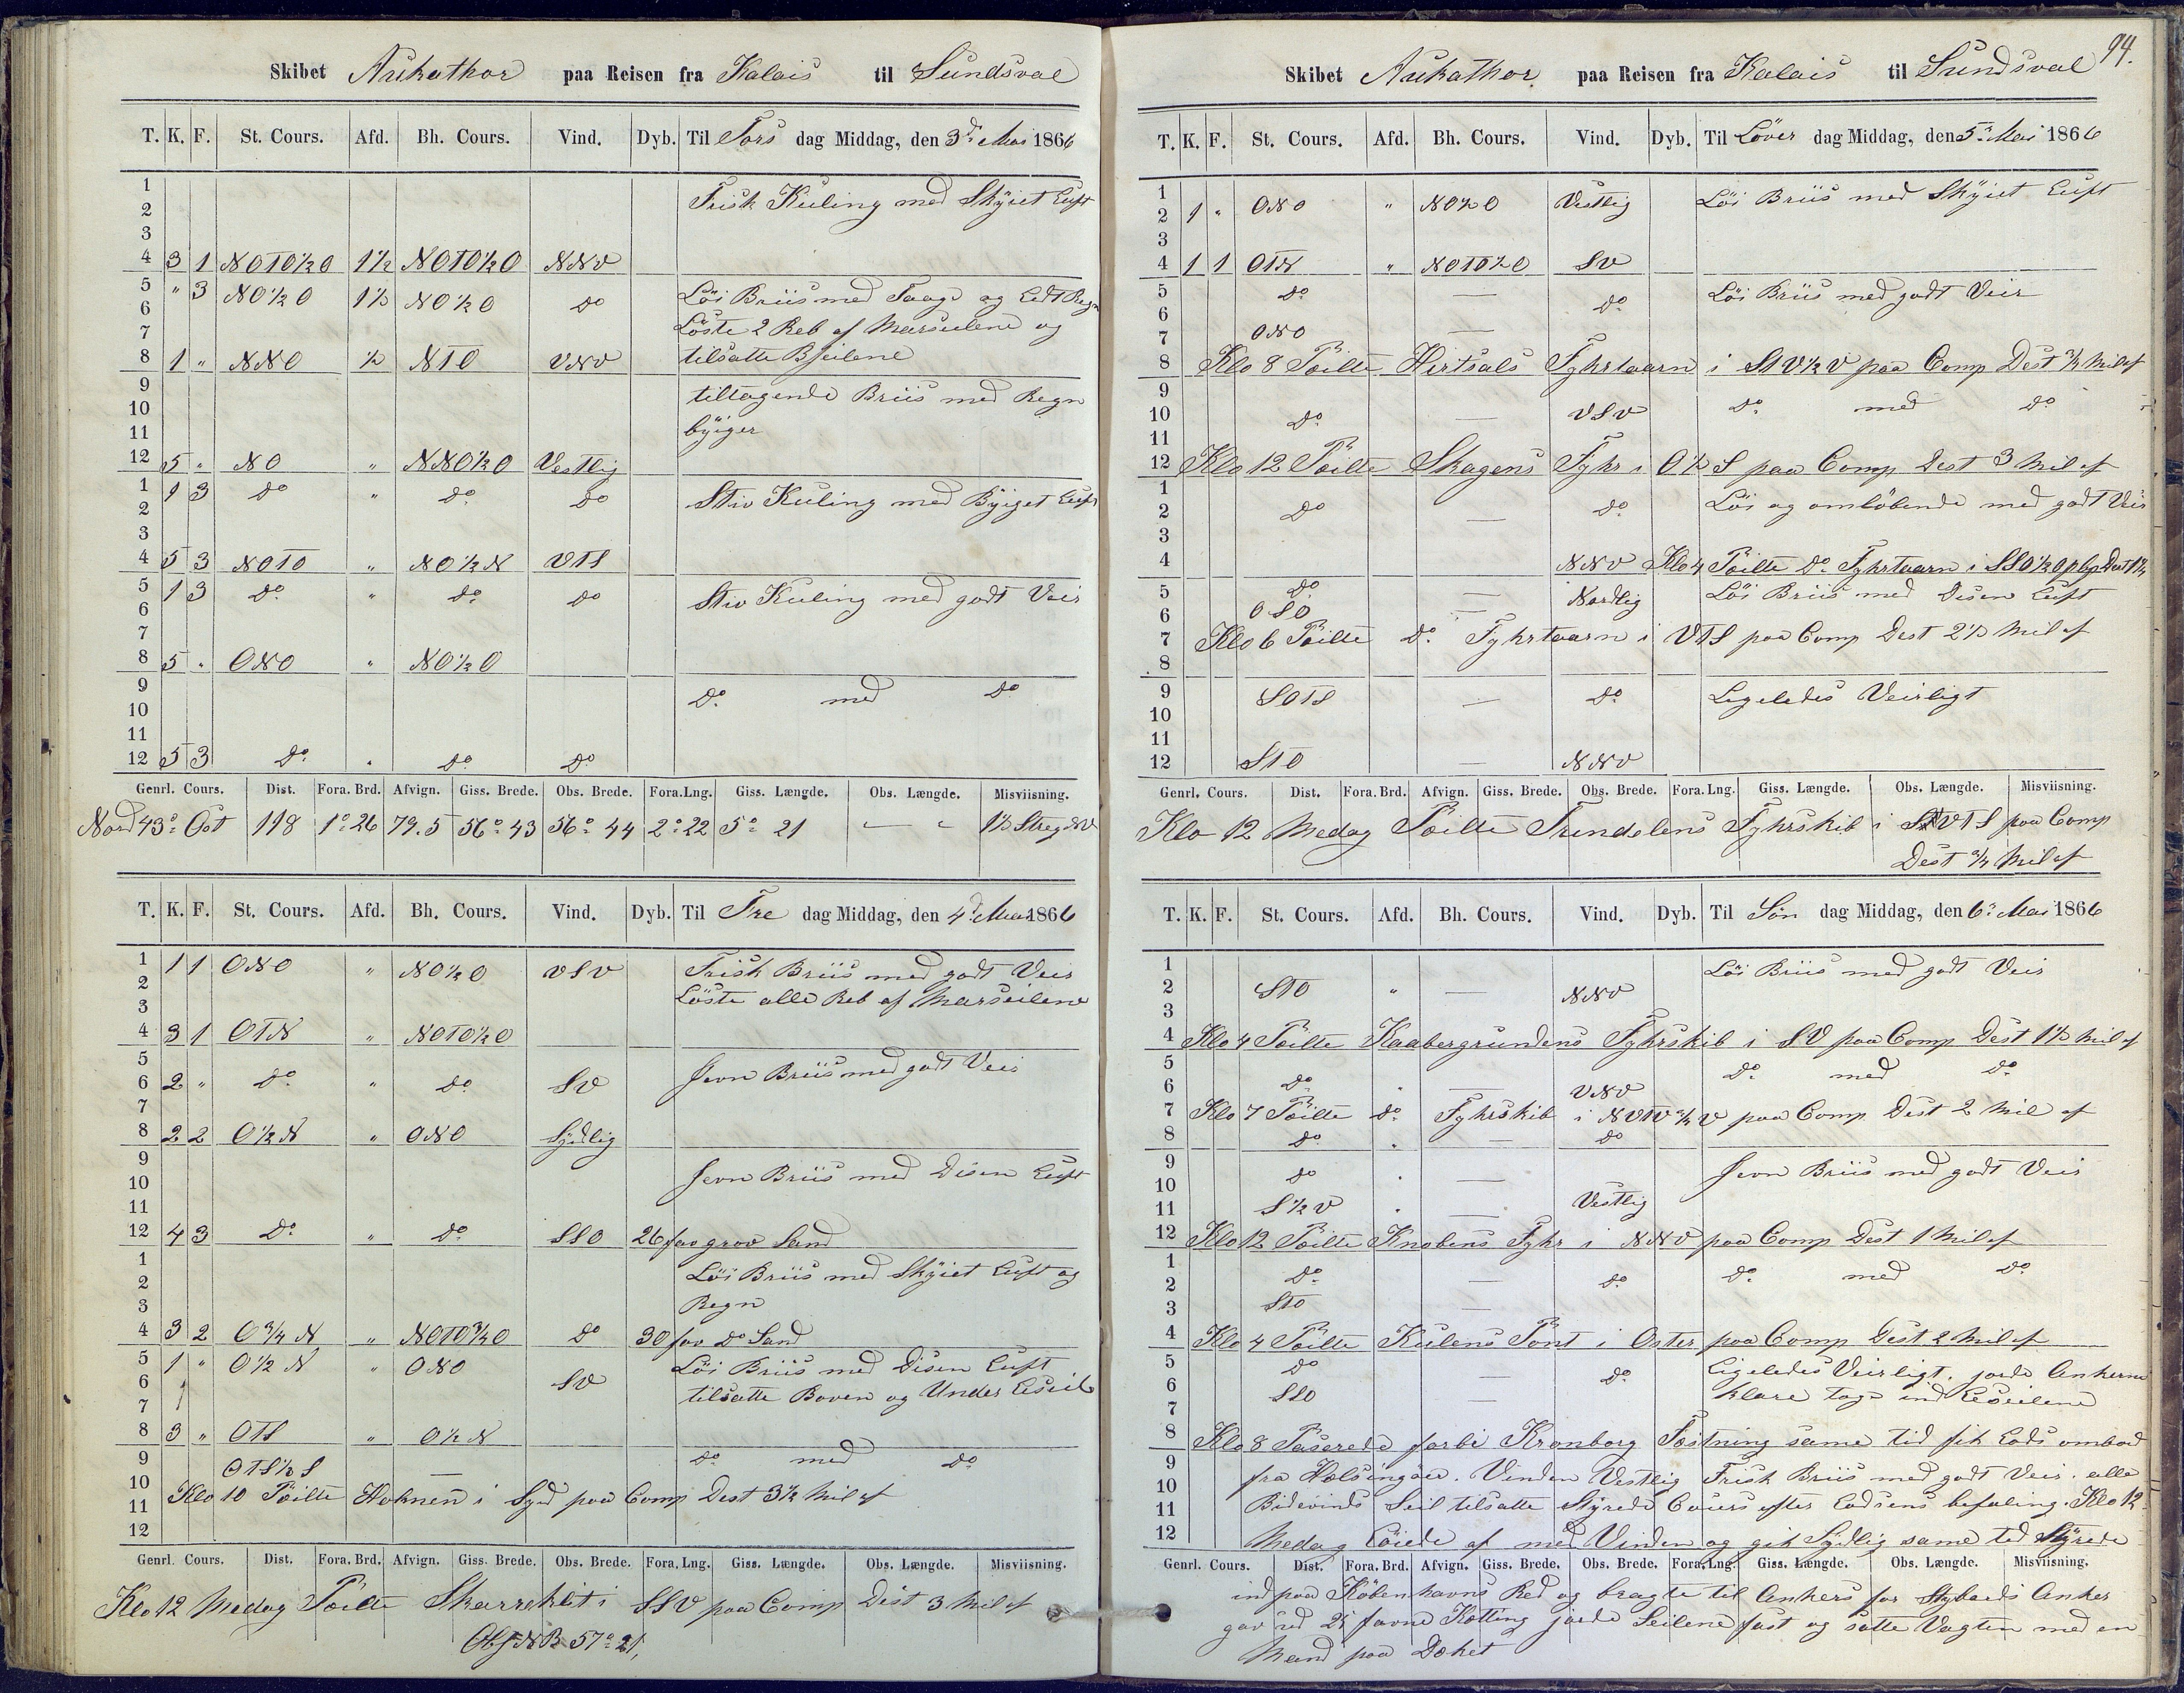 Skibet Aukathor paa Reisen fra Kalais til Sundsval
T. K. F. St. Cours. Afd. Bh. Cours. Vind. Dyb. Til Tors dag Middag, den 3de Mai 1866
1 Frisk Kuling med Skyiet Luft
2
3
4 3 1 NOTO½O 1½ NOTO½O NNV
5 " 3 NO½O 1½ NO½O do Löi Briis med Taage og Lidt Regn
6 Löste 2 Reb af Marseilene og
7
8 1 " NNO ½ NTO VNV tilsatte Bseilene
9 tiltagende Briis med Regn
10
11 byiger
12 5 " NO " NNO½O Vestlig
1 1 3 do " do do Stiv Kuling med Byiget Luft
2
3
4 5 3 NOTO " NO½N VTS
5 1 3 do " do do Stiv Kuling med godt Veir
6
7
8 5 " ONO " NO½O
9 do med do
10
11
12 5 3 do " do do
Genrl. Cours. Dist. Fora. Brd. Afvign. Giss. Brede. Obs. Brede. Fora. Lng. Giss. Længde. Obs. Længde. Misviisning.
Nord 43° Ost 118 1° 26 79.5 56° 43 56° 44 2° 22 5° 21 " " 1½ Streg NV
T. K. F. St. Cours. Afd. Bh. Cours. Vind. Dyb. Til Fre dag Middag, den 4de Mai 1866
1 1 1 ONO " NO½O VSV Frisk Briis med godt Veir
2 Löste alle Reb af Marseilene
3
4 3 1 OTN " NOTO½O
5 Jevn Briis med godt Veir
6 2 " do " do SV
7
8 2 2 O½N " ONO Sydlig
9
10 Jevn Briis med Disen Luft
11
12 4 3 do " do SSO 26 fav grov Sand
1 Löi Briis med Skyiet Luft og
2
3 Regn
4 3 2 O¾N " NOTO¾O do 30 fav do Sand
5 1 " O½N " ONO Löi Briis med Disen Luft
6 SV tilsatte Boven og Under Leseil
7
8 3 " OTS " O½N
9 OTS½S — do med do
10 Klo 10 Peilte Holmen i Syd paa Comp Dest 3½ Mil af
11
12
Genrl. Cours. Dist. Fora. Brd. Afvign. Giss. Brede. Obs. Brede. Fora. Lng. Giss. Længde. Obs. Længde. Misviisning.
Klo 12 Medag Peilte i SSV paa Comp Dist 3 Mil af
Obs NB 57° 21,
94.
Skibet Aukathor paa Reisen fra Kalais til Sundsval
T. K. F. St. Cours. Afd. Bh. Cours. Vind. Dyb. Til Löver dag Middag, den 5te Mai 1866
1 Löi Briis med Skyiet Luft
2 1 " ONO " NO½O Vestlig
3
4 1 1 OTN " NOTO½O SV
5 do — do Löi Briis med godt Veir
6
7 ONO —
8 Klo 8 Peilte Hirtsals Fyhrtaarn i STV½V paa Comp Dest ¾ Mil af
9
10 do — VSV do med do
11
12 Klo 12 Peilte Skagens Fyhr i O½S paa Comp Dest 3 Mil af
1 Löi og omlöbende med godt Veir
2 do — do
3
4 NNV Klo 4 Peilte do Fyhrtaarn i SSO½O
5 do — Nordlig Löi Briis med Disen Luft
6 OSO —
7 Klo 6 Peilte do Fyhrtaarn i VTS paa Comp Dest 2½ Mil af
8
9 SOTS — do Ligeledes Veirligt
10
11
12 STO — NNV
Genrl. Cours. Dist. Fora. Brd. Afvign. Giss. Brede. Obs. Brede. Fora. Lng. Giss. Længde. Obs. Længde. Misviisning.
Klo 12 Medag Peilte Trindelens Fyhrskib i SVTS paa Comp
Dest ¾ Mil af
T. K. F. St. Cours. Afd. Bh. Cours. Vind. Dyb. Til Sön dag Middag, den 6te Mai 1866
1 Löi Briis med godt Veir
2 STO " — NNV
3
4 Klo 4 Peilte Kaabergrundens Fyhrskib i SV paa Comp Dest 1½ Mil af
5 do med do
6 do " — VNV
7 Klo 7 Peilte do Fyhrskib i NVTV¾V paa Comp Dest 2 Mil af
8 do " — do
9 Jevn Briis med godt Veir
10 do " —
11 S½V " — Vestlig
12 Klo 12 Peilte Knobens Fyhr i NNV paa Comp Dest 1 Mil af
1
2 do — do do med do
3 STO —
4 Klo 4 Peilte Kulens Pönt i Oster paa Comp Dest 2 Mil af
5 do — do Ligeledes Veirligt. jorde Ankerne
6 SSO — klare tog ind Leseilene
7
8 Klo 8 Paserede forbi Kronborg Fæstning same tid fik Lods ombod
9 fra Helsingöer. Vinden Vestlig Frisk Briis med godt Veir. alle
10 Bidevinds Seil tilsatte Styrede Cours efter Lodsens befaling. Klo 12
11
12 Medag Löiede af med Vinden og gik Sydlig same tid Styrede
Genrl. Cours. Dist. Fora. Brd. Afvign. Giss. Brede. Obs. Brede. Fora. Lng. Giss. Længde. Obs. Længde. Misviisning.
ind paa Köbenhavns Red og bragte til Ankers for Styboeds Anker
gav ud 25 favne Kætting jorde Seilene fast og satte Vagten med en
Mand paa Dæket